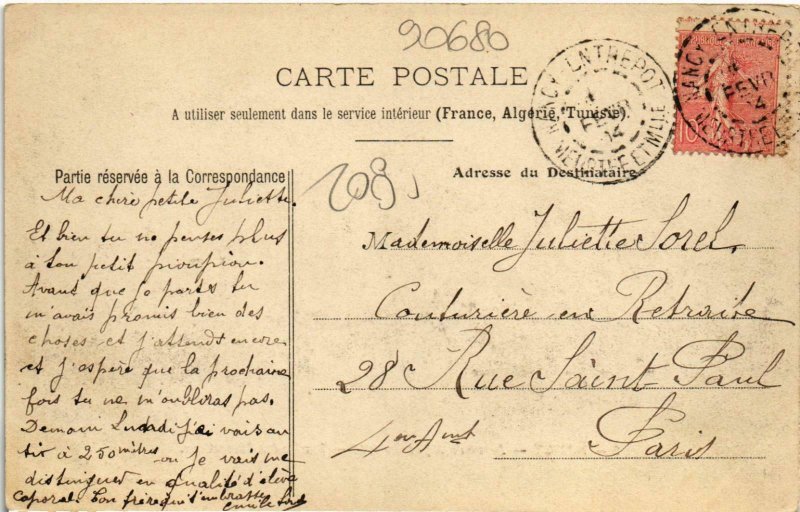 90680
CARTE POSTALE
A utiliser seulement dans le service intérieur (France, Algérie, Tunisie).
NANCY-ENTREPOT
4
FEVR
14
MEURTHE ET MLLE
10
Partie réservée à la Correspondance
Ma chère petite Juliette.
Et bien tu ne penses plus
à ton petit pioupiou.
Avant que je partes tu
m'avais promis bien des
choses et j'attends encore
et j'espère que la prochaine
fois tu ne m'oubliras pas.
Demain Lundi vais au
tir à 250 mètres ou je vais me
distinguer en qualité d'élève
caporal. Ton frère qui t'embrasse
Emile Sorel
Adresse du Destinataire
Mademoiselle Juliette Sorel
Couturière en Retraite
28 Rue Saint-Paul
4em Arrt Paris